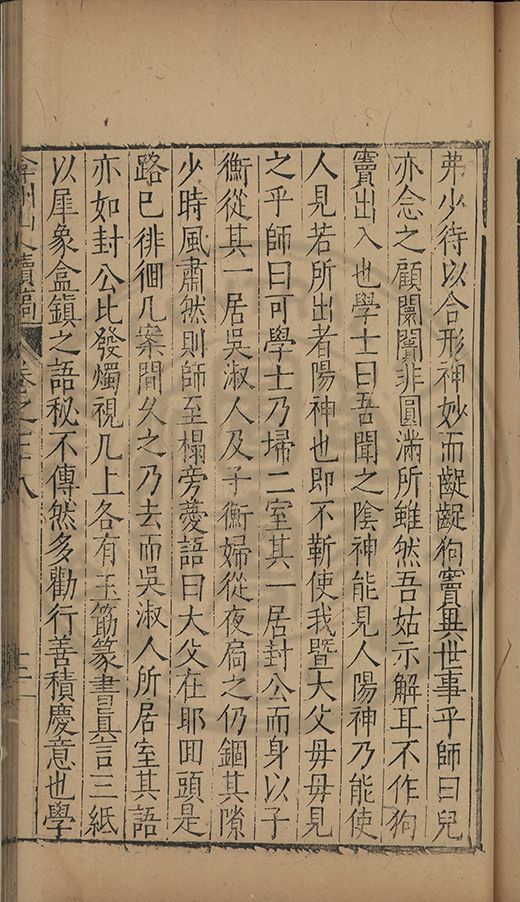 弗少待以合形神妙而齪齪狥竇異世事乎師曰兒
亦念之顧闤闠非圓滿所雖然吾姑示解耳不作狥
竇出入也學士曰吾聞之陰神能見人陽神乃能使
人見若所出者陽神也即不靳使我暨大父毋毋見
之乎師曰可學士乃埽二室其一居封公而身以子
衡從其一居吳淑人及子衡婦從夜扃之仍錮其隙
少時風肅然則師至榻旁薆語曰大父在耶囬頭是
路巳徘徊几案間乆之乃去而吳淑人所居室其語
亦如封公比發燭視几上各有玉筯篆書真言三紙
以犀象盒鎮之語秘不傳然多勸行善積慶意也學
卷之